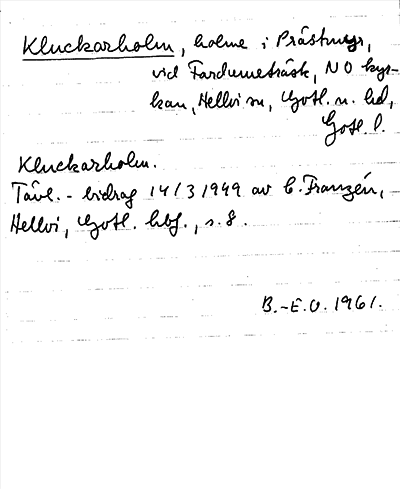 Kluckarholm, holme i Prästmyr,
vid Fardumeträsk, NO kyr-
kan, Hellvi sn, Gotl. n. hd,
Gotl. l.
Kluckarholm.
Tävl. - bidrag 14/3 1949 av C. Franzén,
Hellvi, Gotl. hbf., s. 8.
B.-E.O. 1961.